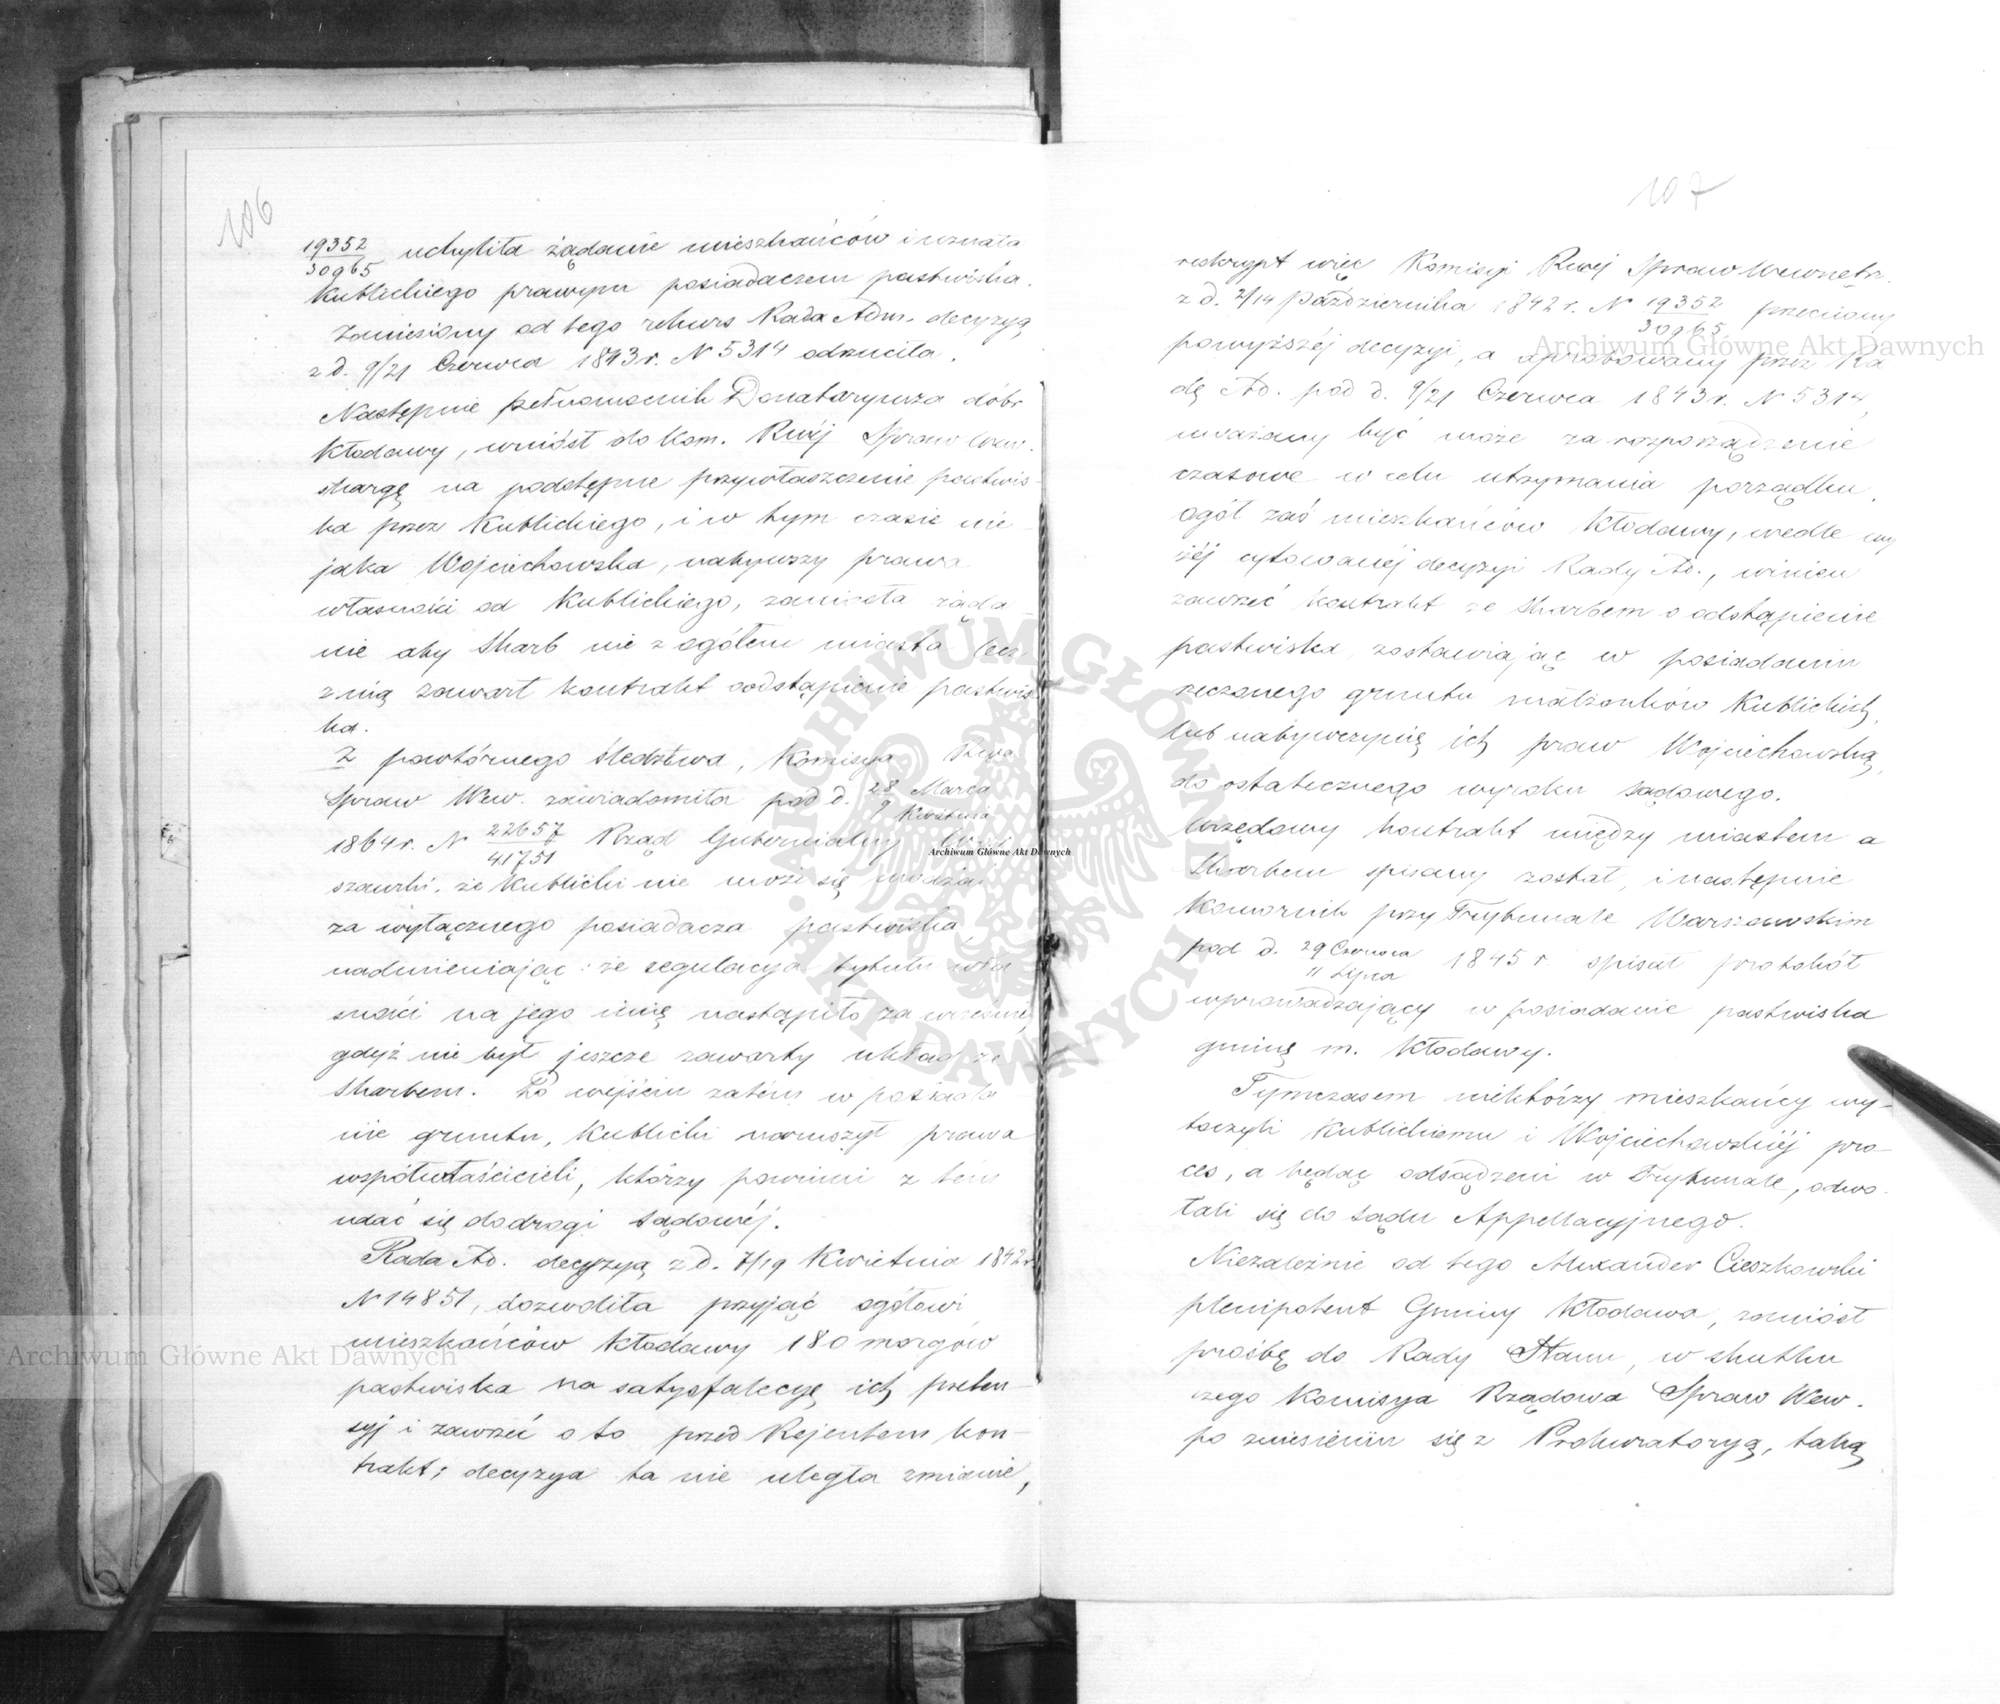 106
19352/30965 uchyliła żądanie mieszkańców i uznała
Kublickiego prawym posiadaczem pastwiska.
Zaniesiony od tego rekurs Rada Adm. decyzyą
z d. 9/21 Czerwca 1843 r. N 5314 odrzuciła.
Następnie pełnomocnik Donataryusza dóbr
Kłodawy, wniósł do Kom. Rwéj Spraw Wew.
skargę na podstępne przywłaszczenie pastwis-
ka przez Kublickiego, i w tym czasie nie-
jaka Wojciechowska, nabywszy prawa
własności od Kublickiego, zaniosła żąda-
nie aby Skarb nie z ogółem miasta lecz
z nią zawarł kontrakt o odstąpienie pastwis
ka.
Z powtórnego śledztwa, Komisya Rzwa
Spraw Wew. zawiadomiła pod d. 28 Marca/9 Kwietnia
1864 r. N 22657/41751 Rząd Gubernialny War
szawski, że Kublicki nie może się uważać
za wyłącznego posiadacza pastwiska,
nadmieniając: że regulacya tytułu wła
sności na jego imię nastąpiło za wcześnie,
gdyż nie był jeszcze zawarty układ ze
Skarbem. Po wejściu zatém w posiada
nie gruntu, Kublicki naruszył prawa
współwłaścicieli, którzy powinni z tém
udać się do drogi sądowéj.
Rada Ad. decyzyą z d. 7/19 Kwietnia 1842 r
N 14851, dozwoliła przyjąć ogółowi
mieszkańców Kłodawy 180 morgów
pastwiska na satysfakcyę ich preten-
syj i zawrzeć o to przed Rejentem kon-
trakt; decyzya ta nie uległa zmianie,
107
reskrypt więc Komisyi Rwéj Spraw Wewnętrz.
z d. 2/14 Października 1842 r. N 19352/30965 przeciwny
powyższéj decyzyi, a aprobowany przez Ra
dę Ad. pod d. 9/21 Czerwca 1843 r. N 5314,
uważany być może za rozporządzenie
czasowe w celu utrzymania porządku,
ogół zaś mieszkańców Kłodawy, wedle wy
żéj cytowanéj decyzyi Rady Ad., winien
zawrzeć kontrakt ze Skarbem o odstąpienie
pastwiska, zostawiając w posiadaniu
rzeczonego gruntu małżonków Kublickich,
lub nabywczynię ich praw Wojciechowską,
do ostatecznego wyroku sądowego.
Urzędowy kontrakt między miastem a
Skarbem spisany został, i następnie
Komornik przy Trybunale Warszawskim
pod d. 29 Czerwca/11 Lipca 1845 r spisał protokół
wprowadzający w posiadanie pastwiska
gminę m. Kłodawy.
Tymczasem niektórzy mieszkańcy wy-
toczyli Kublickiemu i Wojciechowskiéj pro-
ces, a będąc odsądzeni w Trybunale, odwo
łali się do Sądu Appellacyjnego.
Niezależnie od tego Alexander Cieszkowski
plenipotent Gminy Kłodawa, zaniósł
prośbę do Rady Stanu, w skutku
czego Komisya Rządowa Spraw Wew.
po zniesieniu się z Prokuratoryą, taką
Archiwum Główne Akt Dawnych
Archiwum Główne Akt Dawnych
Archiwum Główne Akt Dawnych
ARCHIWUM GŁÓWNE AKT DAWNYCH